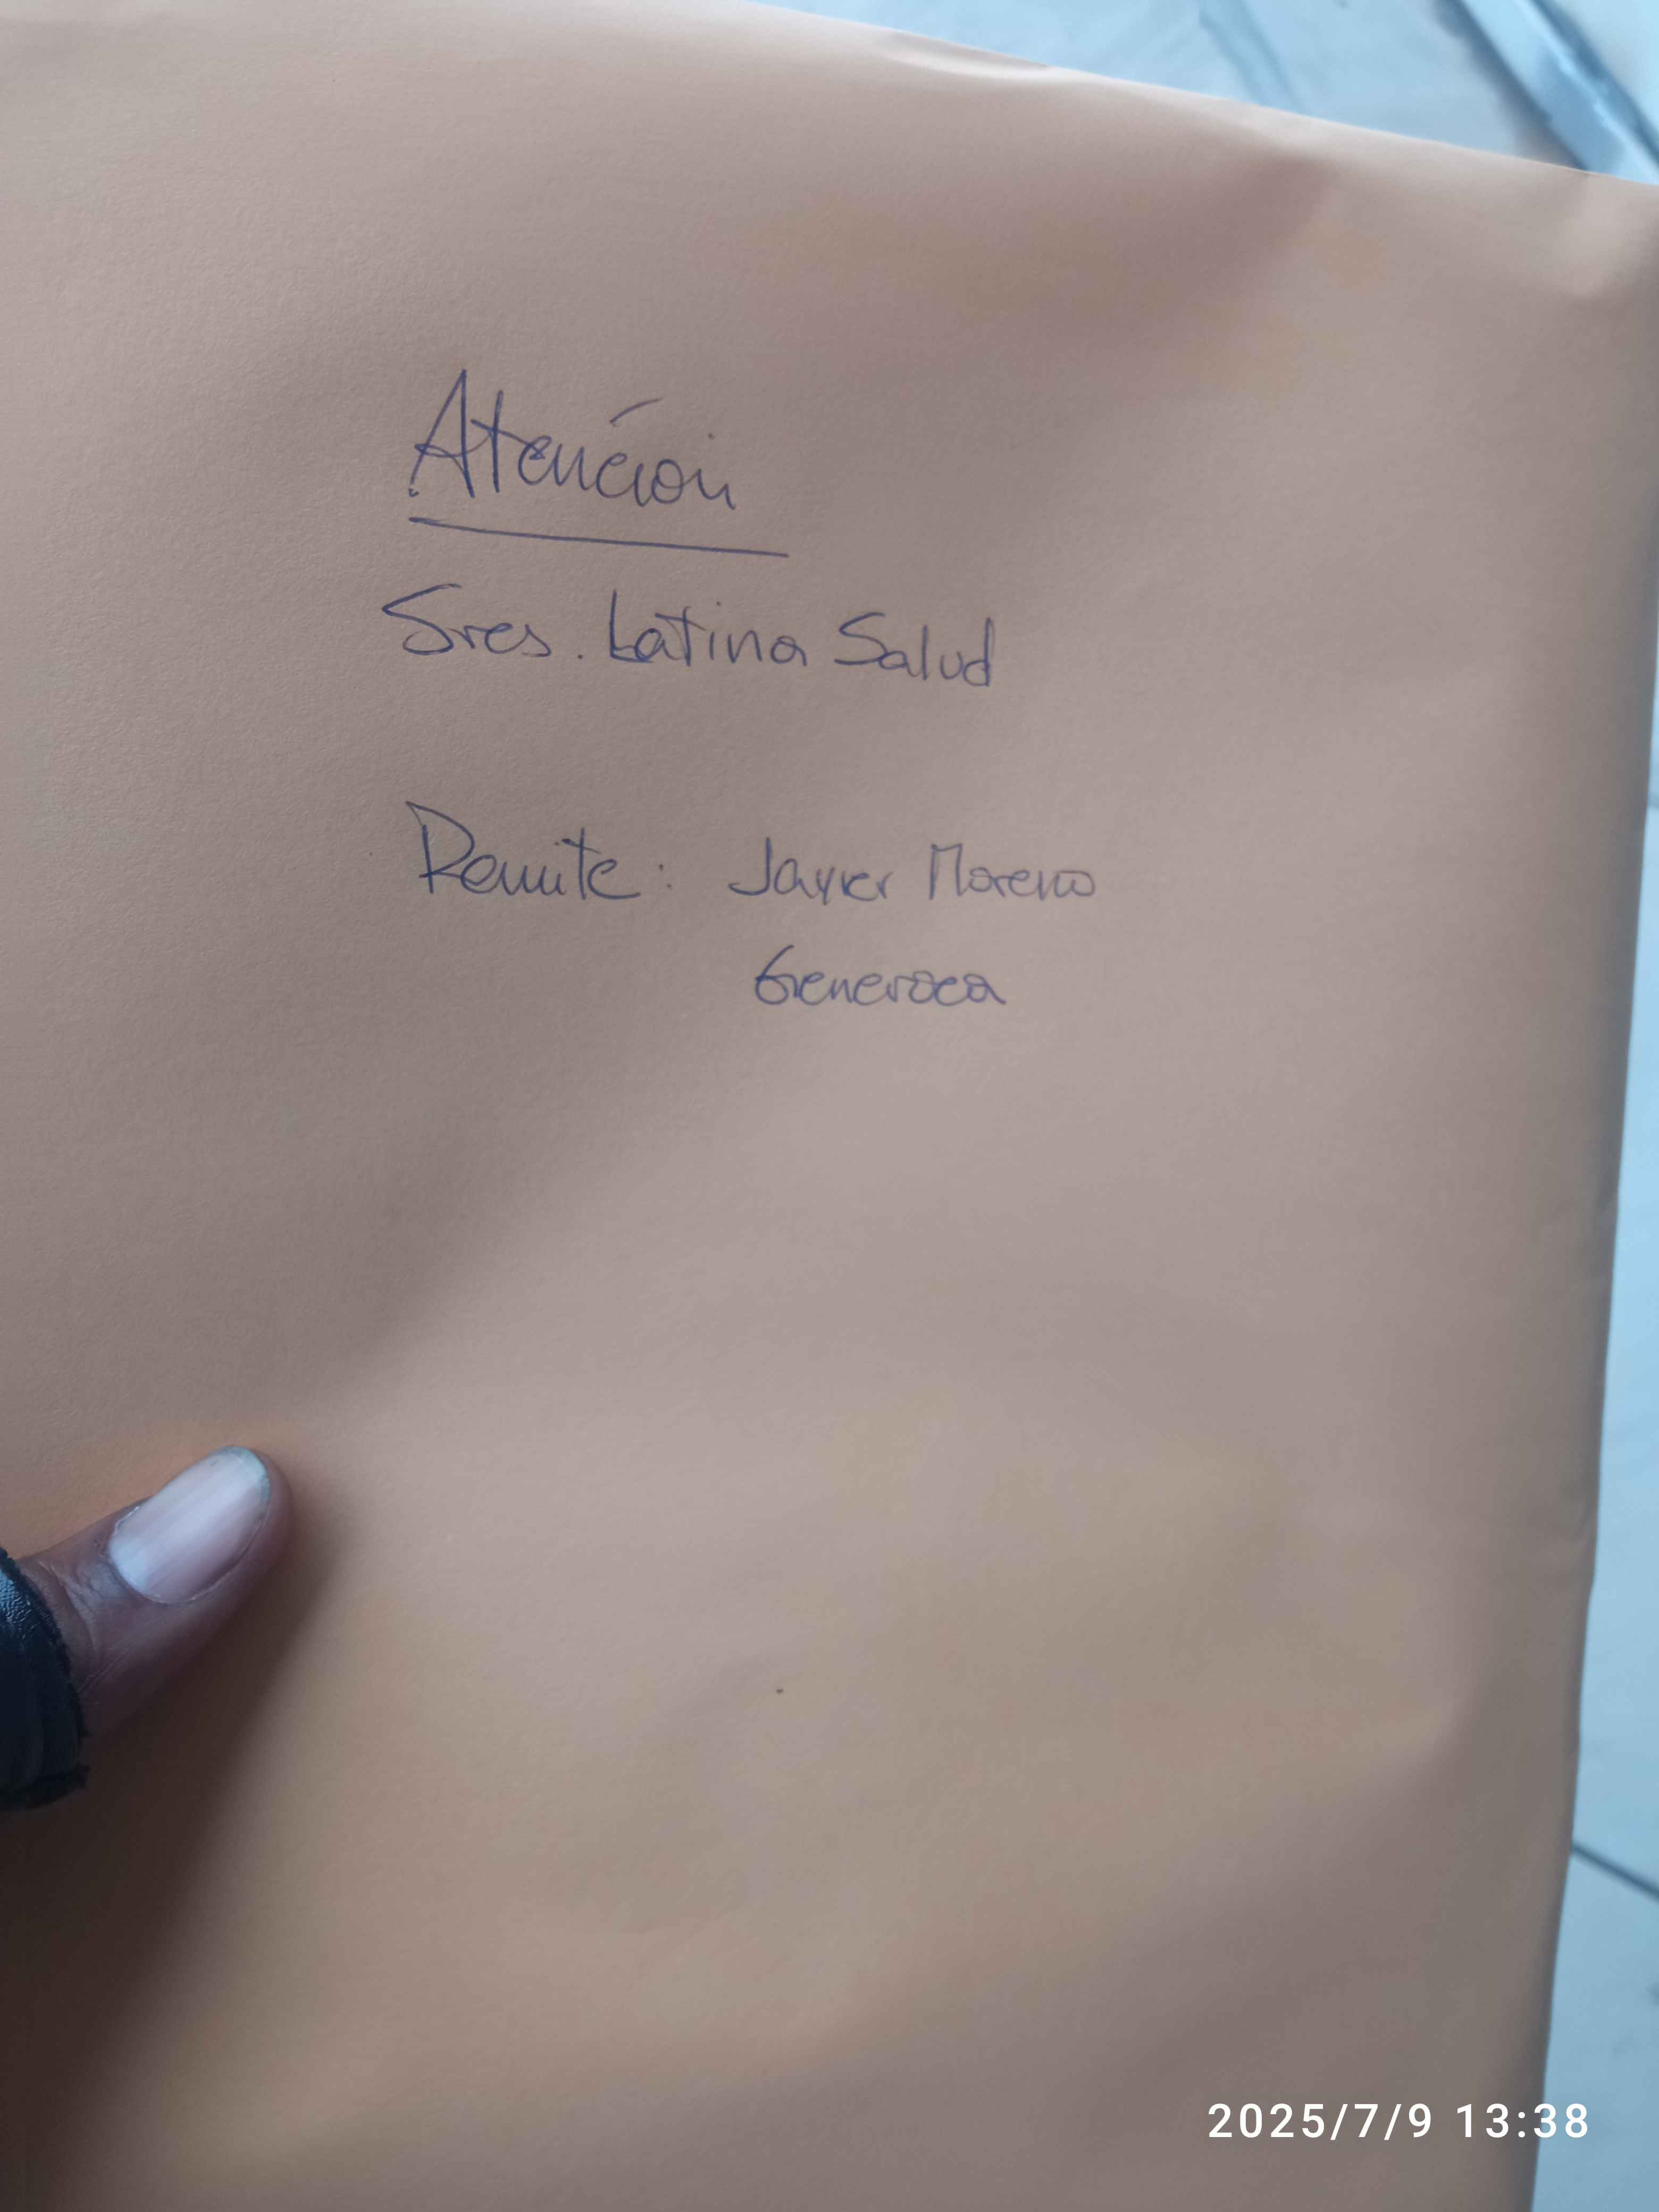 Atención
Sres. Latina Salud
Remite: Javier Moreno
Generoca
2025/7/9 13:38